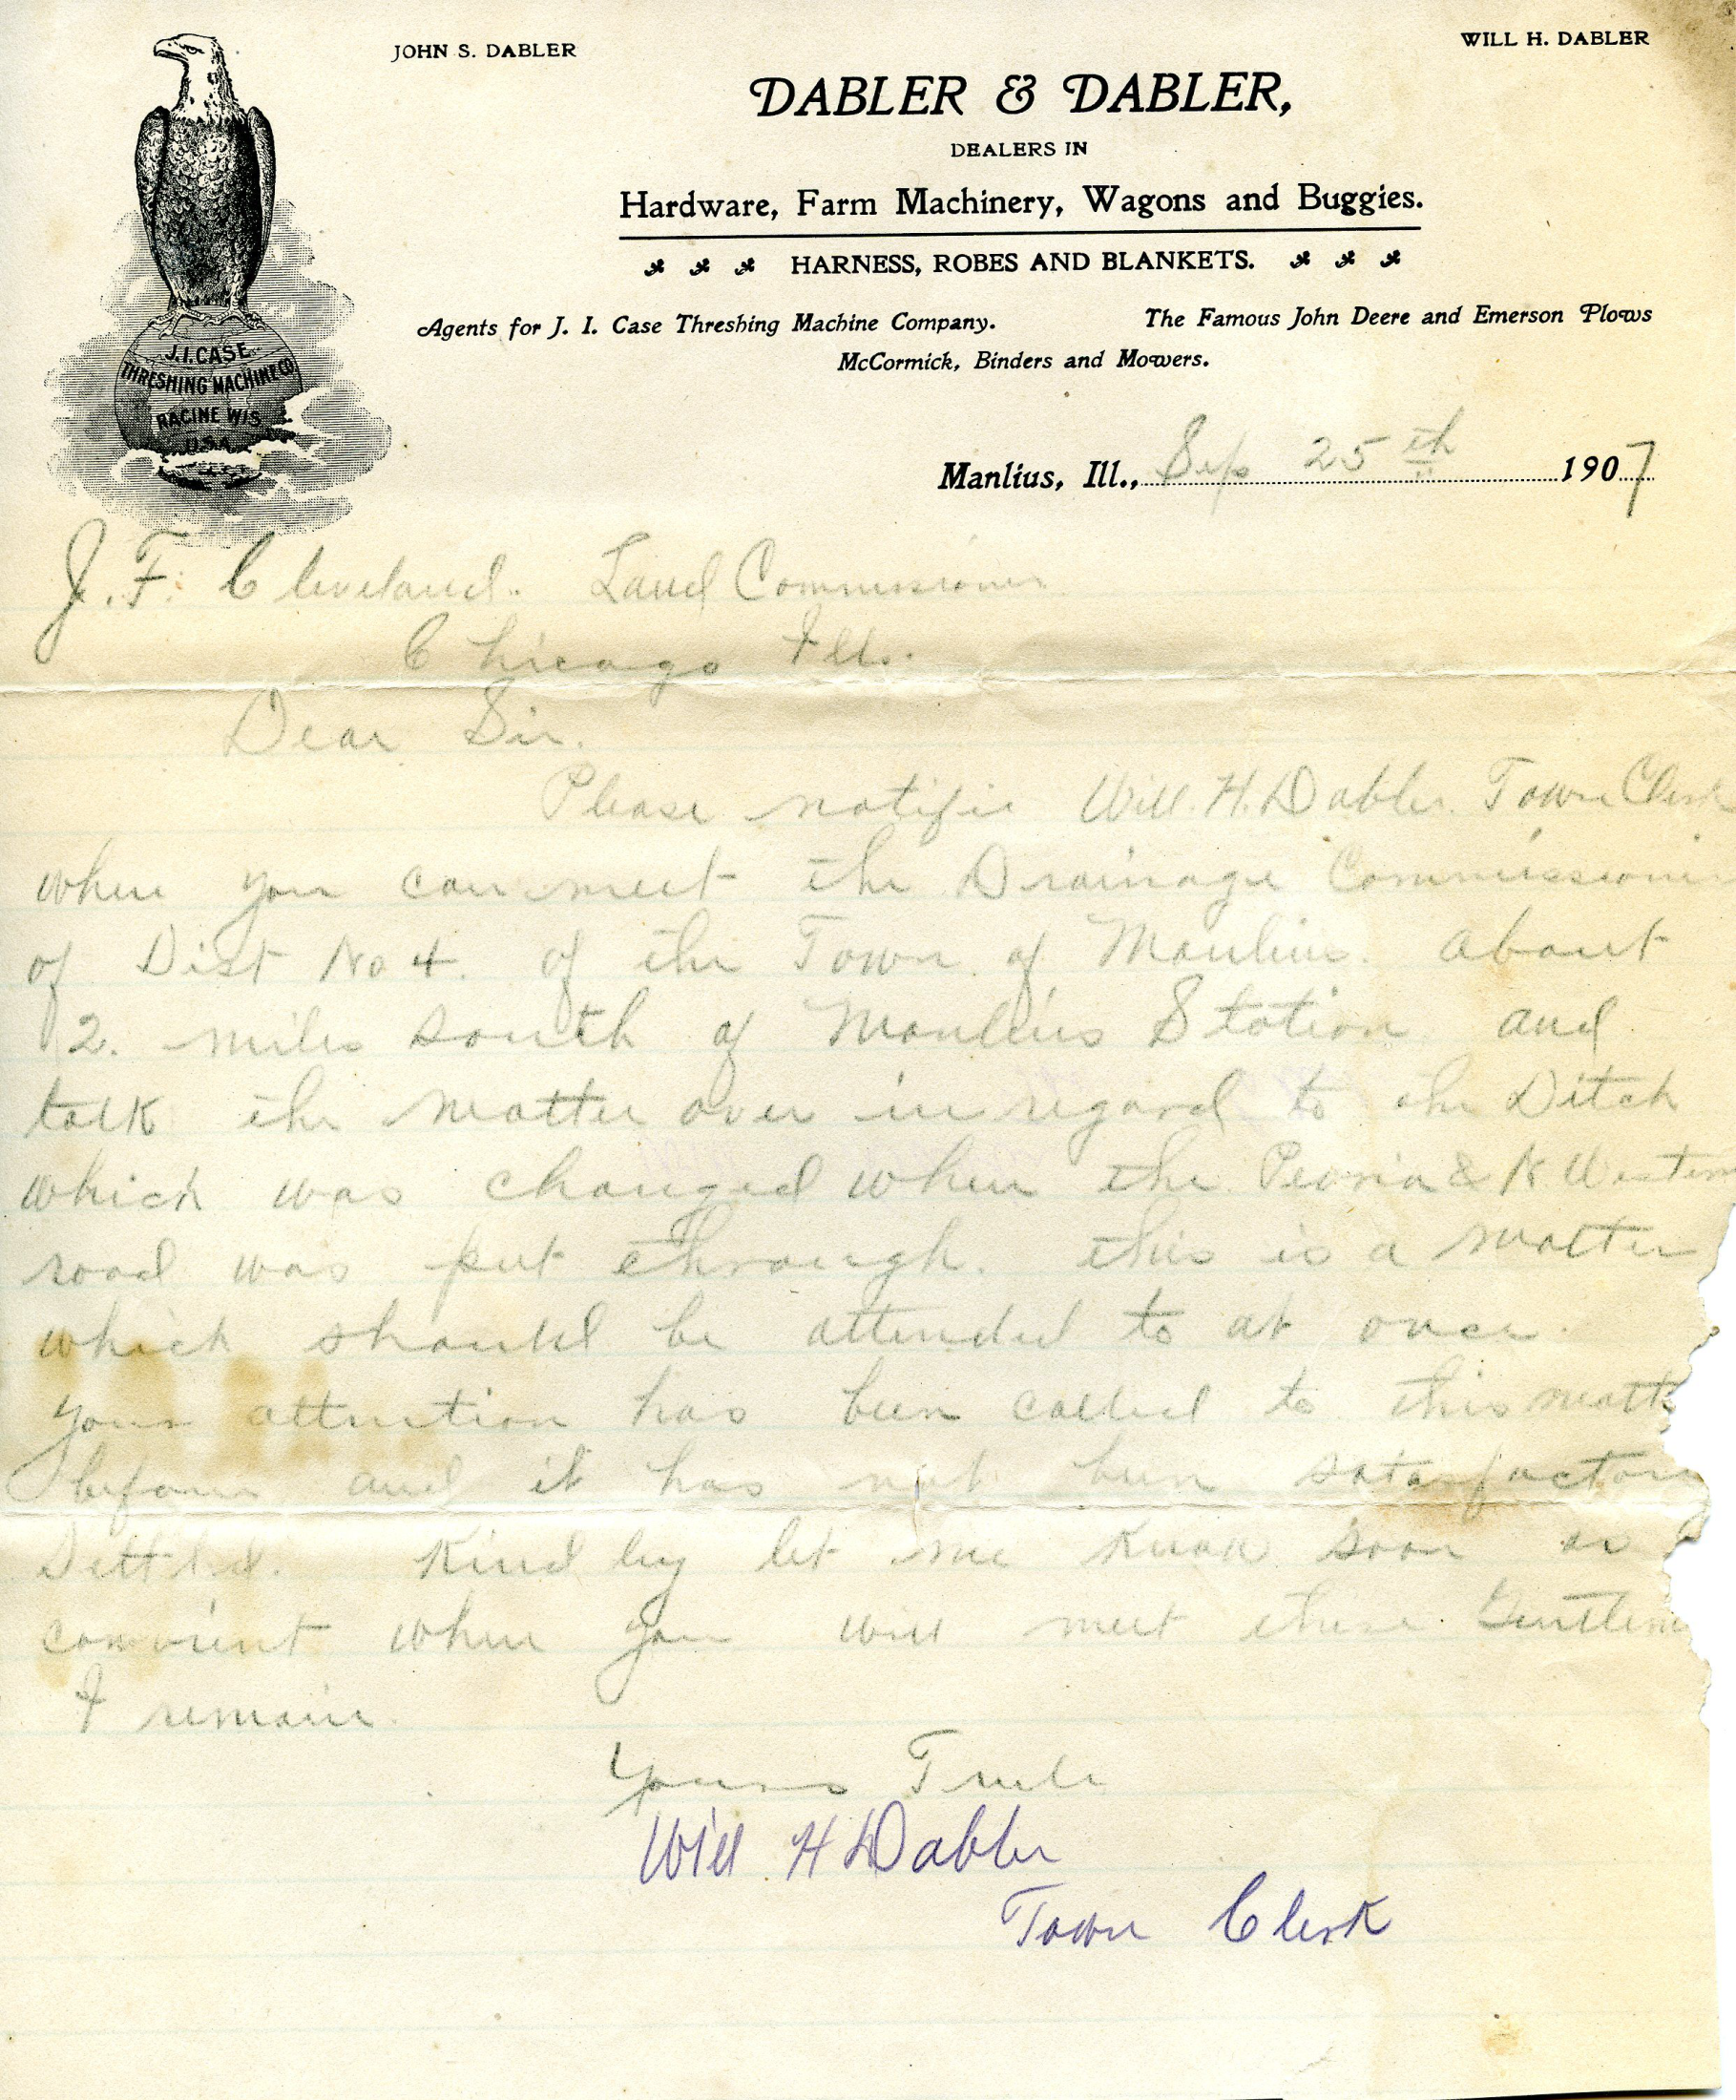 JOHN S. DABLER
WILL H. DABLER
DABLER & DABLER,
DEALERS IN
Hardware, Farm Machinery, Wagons and Buggies.
HARNESS, ROBES AND BLANKETS.
Agents for J. I. Case Threshing Machine Company. The Famous John Deere and Emerson Plows
McCormick, Binders and Mowers.
J.I. CASE
THRESHING MACHINE CO
RACINE WIS.
U.S.A.
Manlius, Ill., Sep 25th 1907
J. F. Cleveland. Land Commissioner
Chicago Ill.
Dear Sir.
Please notifie Will. H. Dabler. Town Clerk
when you can meet the Drainage Commissioner
of Dist No 4. of the Town of Manlius. about
2. miles south of Manlius Station and
talk the matter over in regard to the Ditch
which was changed when the Peoria & N Western
road was put through. this is a matter
which should be attended to at once.
Your attention has been called to this matte
before and it has not been satasfactory
Settled. Kindley let me know soon as
convient when you will meet these Gentlem
I remain.
Yours Trule
Will H Dabler
Town Clerk